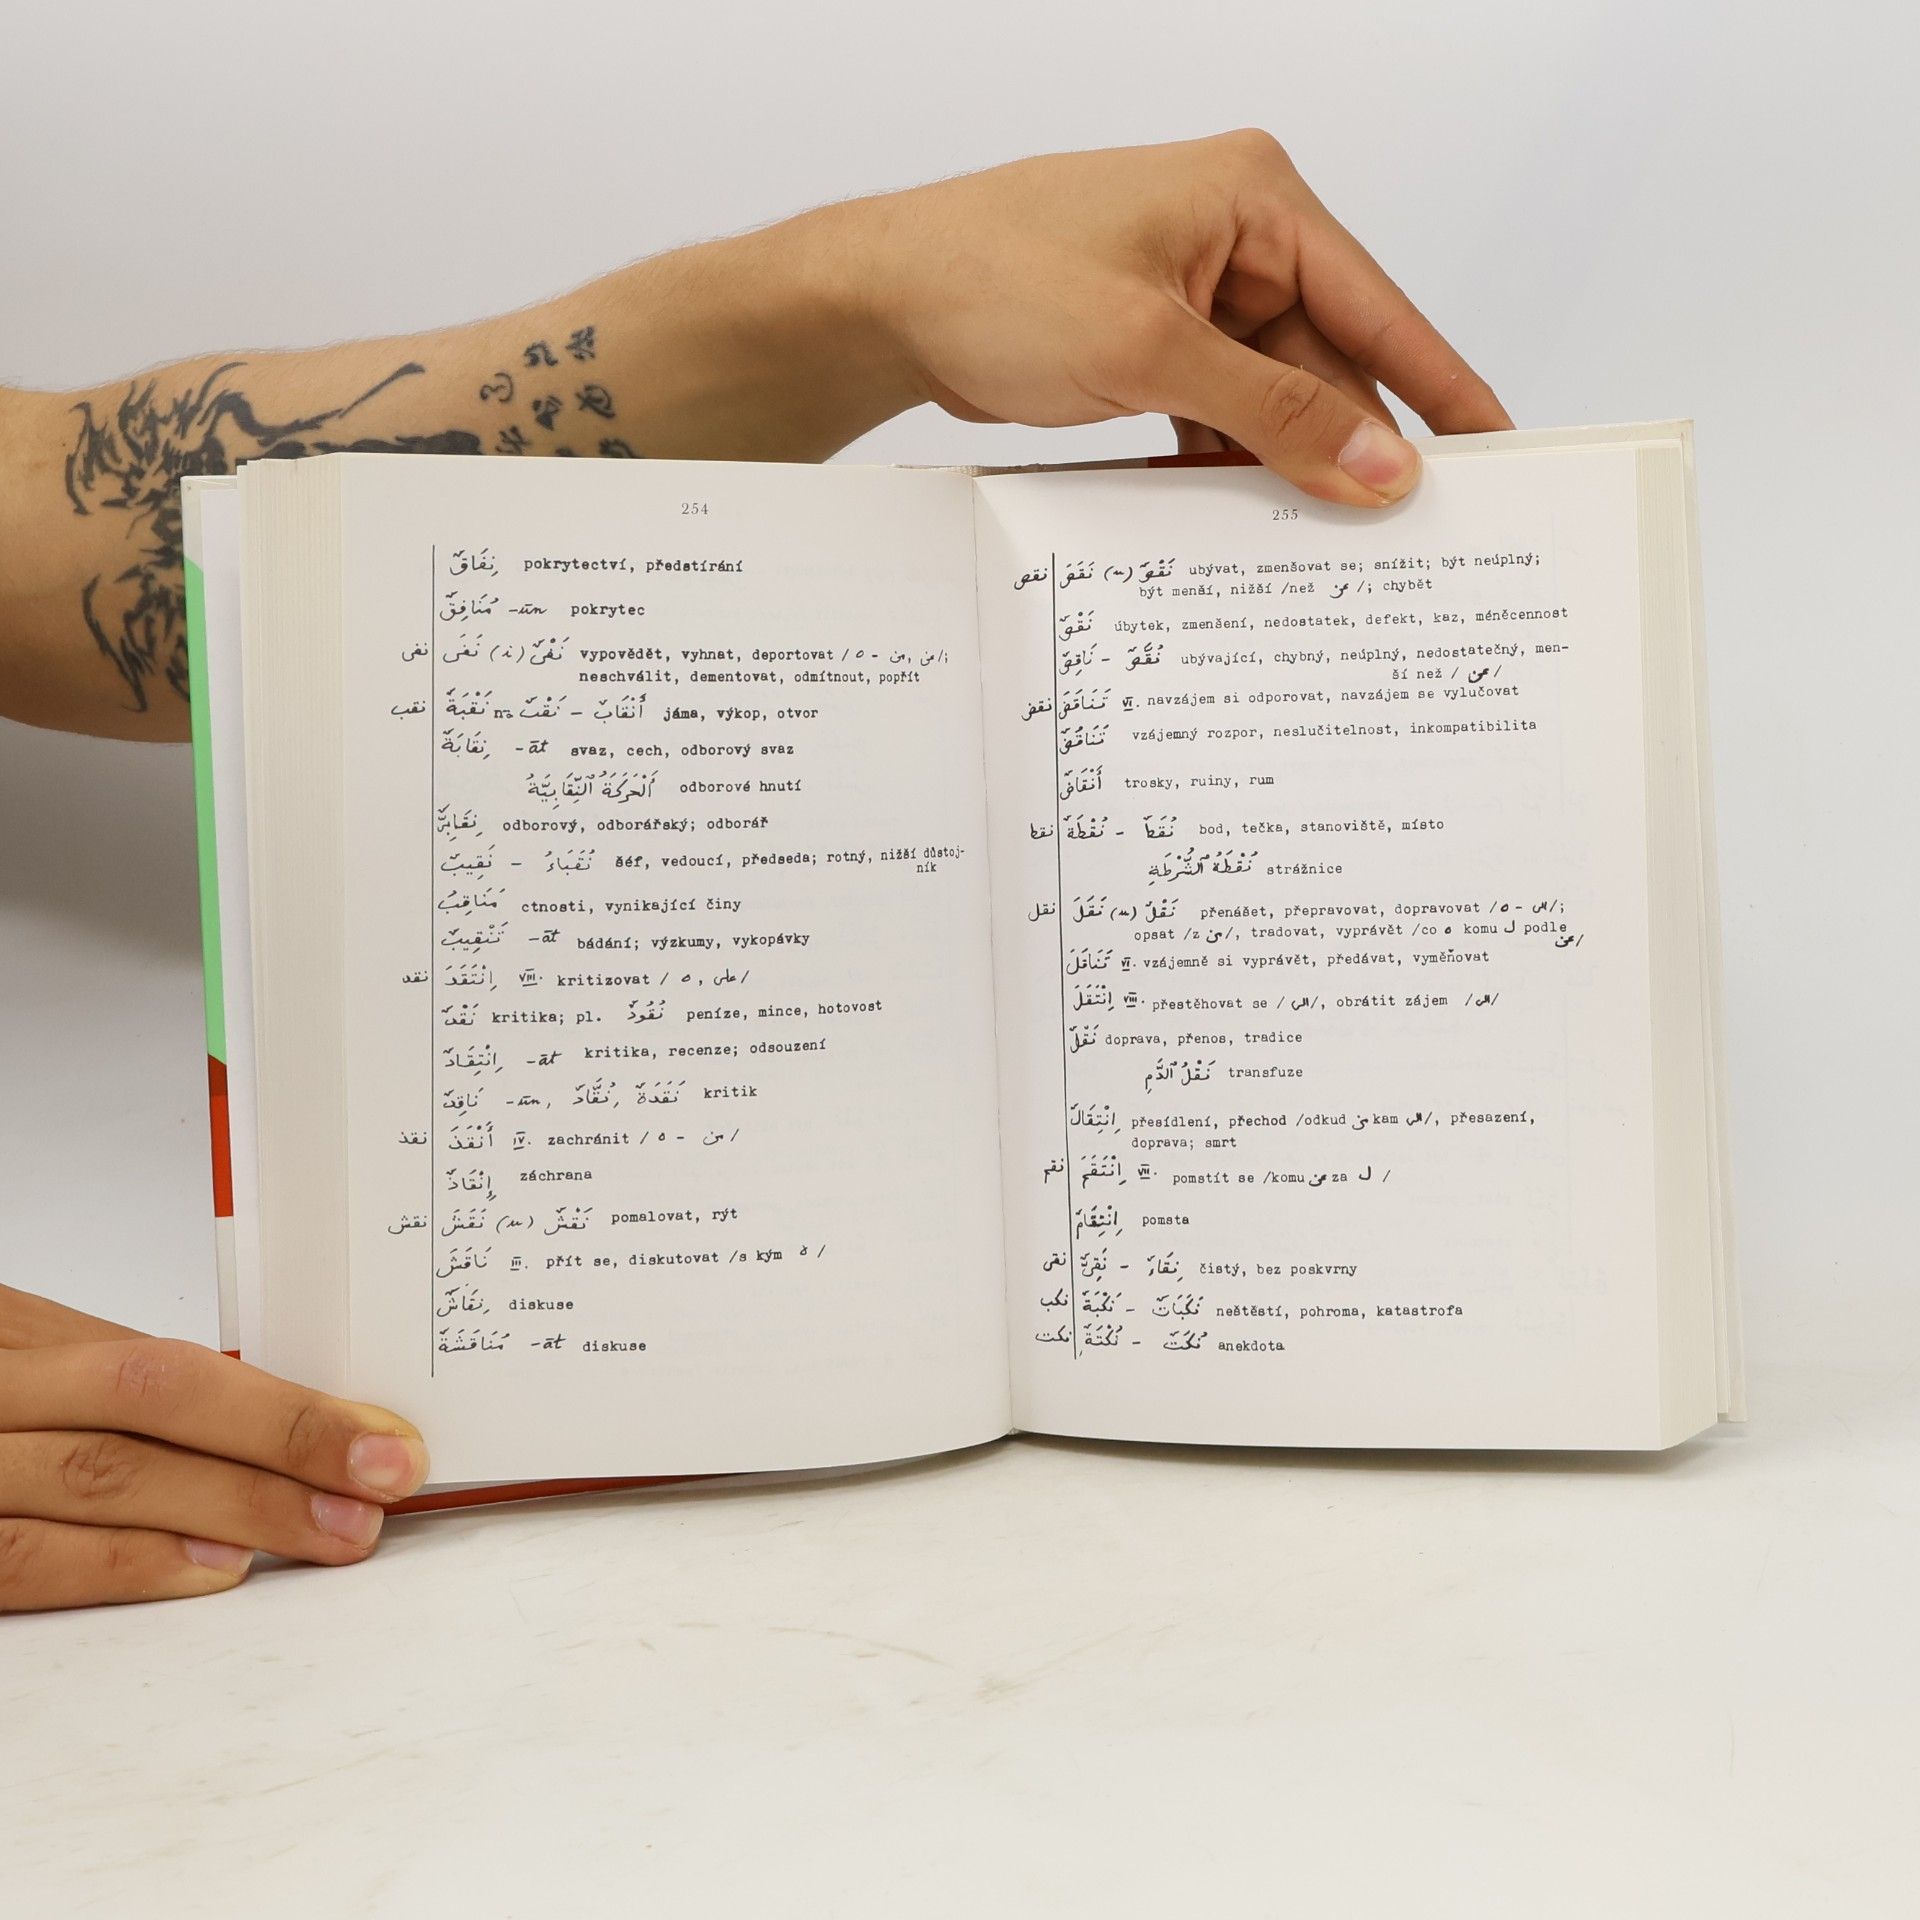 254
نِفَاقٌ pokrytectví, předstírání
مُنَافِقٌ -ūn pokrytec
نفى نَفَى (i) نَفْىٌ vypovědět, vyhnat, deportovat / ه - من, عن/;
neschválit, dementovat, odmítnout, popřít
نقب نَقْبَةٌ نَقْبٌ - أَنْقَابٌ jáma, výkop, otvor
نِقَابَةٌ -āt svaz, cech, odborový svaz
اَلْحَرَكَةُ ٱلنِّقَابِيَّةُ odborové hnutí
نِقَابِىٌّ odborový, odborářský; odborář
نَقِيبٌ - نُقَبَاءُ šéf, vedoucí, předseda; rotný, nižší důstoj-
ník
مَنَاقِبُ ctnosti, vynikající činy
تَنْقِيبٌ -āt bádání; výzkumy, vykopávky
نقد اِنْتَقَدَ VIII. kritizovat / ه , على/
نَقْدٌ kritika; pl. نُقُودٌ peníze, mince, hotovost
اِنْتِقَادٌ -āt kritika, recenze; odsouzení
نَاقِدٌ -ūn, نُقَّادٌ, نَقَدَةٌ kritik
نقذ أَنْقَذَ IV. zachránit / ه - من /
إِنْقَاذٌ záchrana
نقش نَقَشَ (u) نَقْشٌ pomalovat, rýt
نَاقَشَ III. přít se, diskutovat /s kým ه /
نِقَاشٌ diskuse
مُنَاقَشَةٌ -āt diskuse
255
نقص نَقَصَ (u) نَقْصٌ ubývat, zmenšovat se; snížit; být neúplný;
být menší, nižší /než عن /; chybět
نَقْصٌ úbytek, zmenšení, nedostatek, defekt, kaz, méněcennost
نَاقِصٌ - نُقَّصٌ ubývající, chybný, neúplný, nedostatečný, men-
ší než / عن /
نقض تَنَاقَضَ VI. navzájem si odporovat, navzájem se vylučovat
تَنَاقُضٌ vzájemný rozpor, neslučitelnost, inkompatibilita
أَنْقَاضٌ trosky, ruiny, rum
نقط نُقْطَةٌ - نُقَطٌ bod, tečka, stanoviště, místo
نُقْطَةُ ٱلشُّرْطَةِ strážnice
نقل نَقَلَ (u) نَقْلٌ přenášet, přepravovat, dopravovat /ه - الى/;
opsat /z من/, tradovat, vyprávět /co ه komu ل podle
عن/
تَنَاقَلَ VI. vzájemně si vyprávět, předávat, vyměňovat
اِنْتَقَلَ VIII. přestěhovat se / الى/, obrátit zájem /الى/
نَقْلٌ doprava, přenos, tradice
نَقْلُ ٱلدَّمِ transfuze
اِنْتِقَالٌ přesídlení, přechod /odkud من kam الى/, přesazení,
doprava; smrt
نقم اِنْتَقَمَ VIII. pomstít se /komu من za ل /
اِنْتِقَامٌ pomsta
نقى نَقِىٌّ - نِقَاءٌ čistý, bez poskvrny
نكب نَكْبَةٌ - نَكَبَاتٌ neštěstí, pohroma, katastrofa
نكت نُكْتَةٌ - نُكَتٌ anekdota